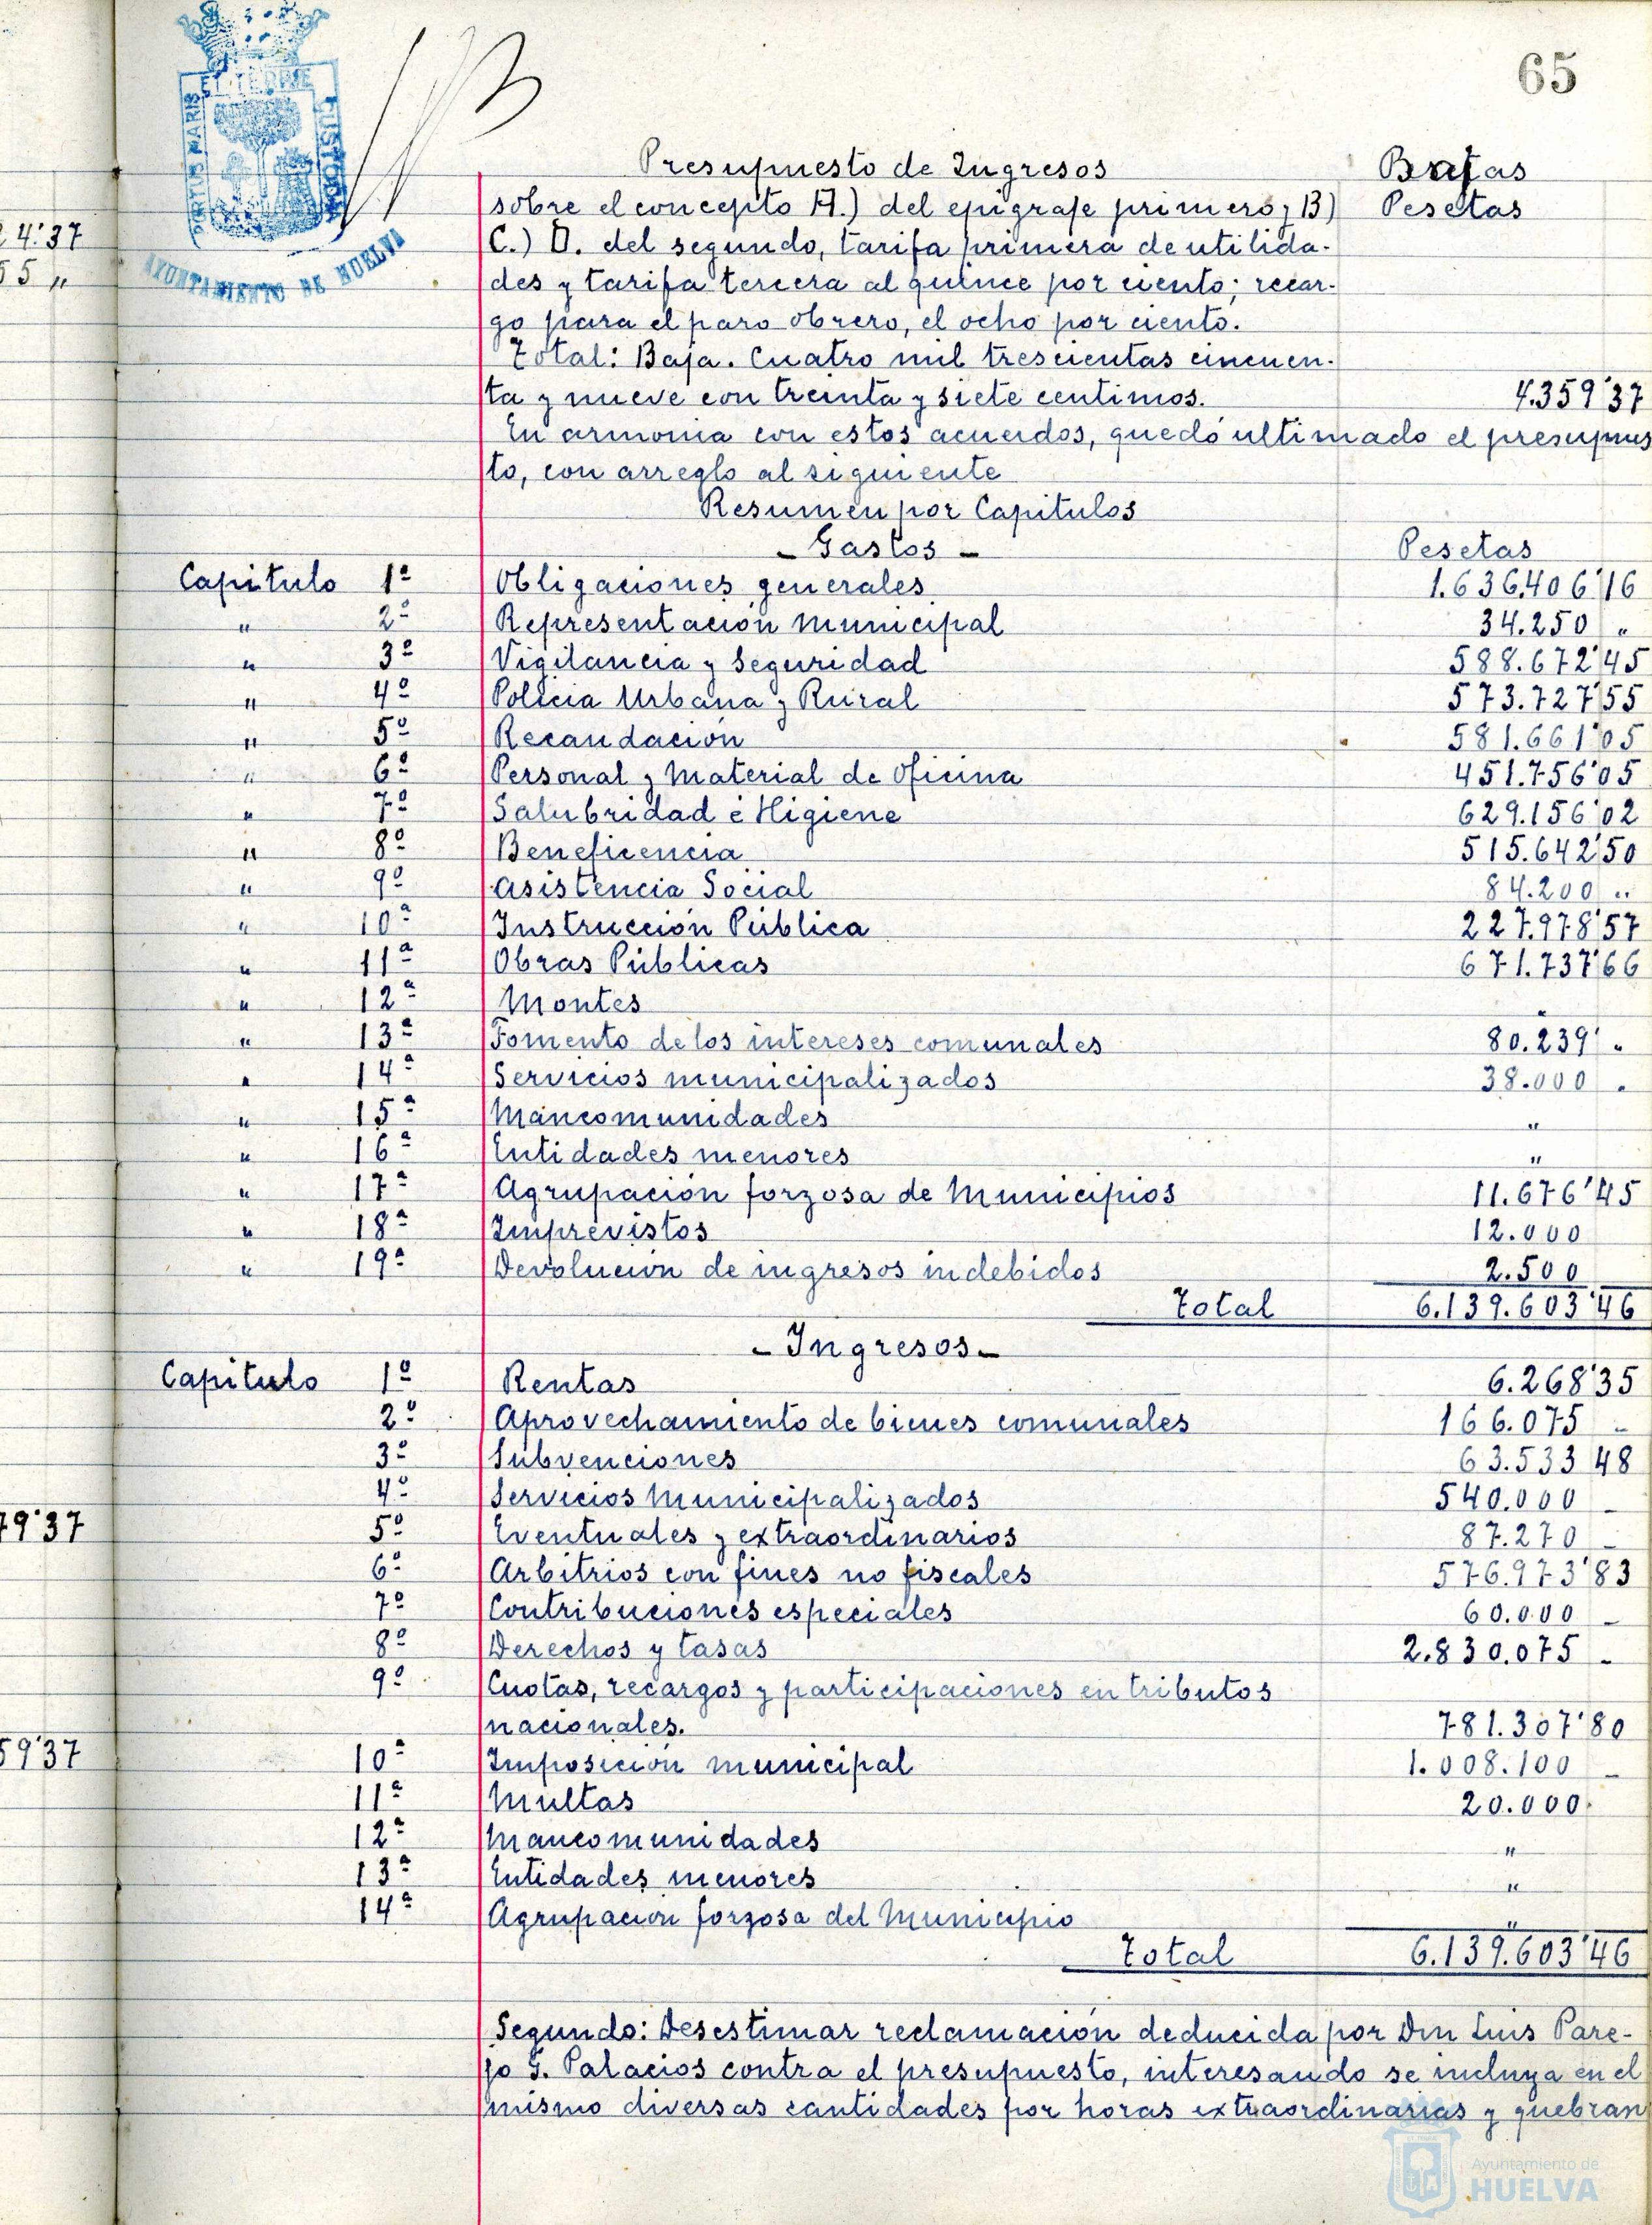 65
PORTUS MARIS ET TERRE CUSTODIA
AYUNTAMIENTO DE HUELVA
4'37
55 "
Presupuesto de Ingresos Bajas
sobre el concepto A.) del epígrafe primero y B) Pesetas
C.) D. del segundo, tarifa primera de utilida-
des y tarifa tercera al quince por ciento; recar-
go para el paro obrero, el ocho por ciento.
Total: Baja. Cuatro mil trescientas cincuen-
ta y nueve con treinta y siete centimos. 4.359'37
En armonia con estos acuerdos, quedó ultimado el presupues
to, con arreglo al siguiente
Resumen por Capitulos
- Gastos - Pesetas
Capitulo 1º Obligaciones generales 1.636.406'16
" 2º Representación municipal 34.250 "
" 3º Vigilancia y Seguridad 588.672'45
" 4º Policia Urbana y Rural 573.727'55
" 5º Recaudación 581.661'05
" 6º Personal y Material de oficina 451.756'05
" 7º Salubridad é Higiene 629.156'02
" 8º Beneficencia 515.642'50
" 9º Asistencia Social 84.200 "
" 10ª Instrucción Pública 227.978'57
" 11ª Obras Públicas 671.737'66
" 12ª Montes "
" 13ª Fomento de los intereses comunales 80.239' "
" 14ª Servicios municipalizados 38.000 "
" 15ª Mancomunidades "
" 16ª Entidades menores "
" 17ª Agrupación forzosa de Municipios 11.676'45
" 18ª Imprevistos 12.000
" 19ª Devolución de ingresos indebidos 2.500
Total 6.139.603'46
- Ingresos -
Capitulo 1º Rentas 6.268'35
2º Aprovechamiento de bienes comunales 166.075 -
3º Subvenciones 63.533 48
4º Servicios Municipalizados 540.000 -
79'37
5º Eventuales y extraordinarios 87.270 -
6º Arbitrios con fines no fiscales 576.973'83
7º Contribuciones especiales 60.000 -
8º Derechos y tasas 2.830.075 -
9º Cuotas, recargos y participaciones en tributos
nacionales. 781.307'80
59'37
10ª Imposición municipal 1.008.100 -
11ª Multas 20.000
12ª Mancomunidades "
13ª Entidades menores "
14ª Agrupación forzosa del Municipio "
Total 6.139.603'46
Segundo: Desestimar reclamación deducida por Don Luis Pare-
jo G. Palacios contra el presupuesto, interesando se incluya en el
mismo diversas cantidades por horas extraordinarias y quebran
Ayuntamiento de
HUELVA